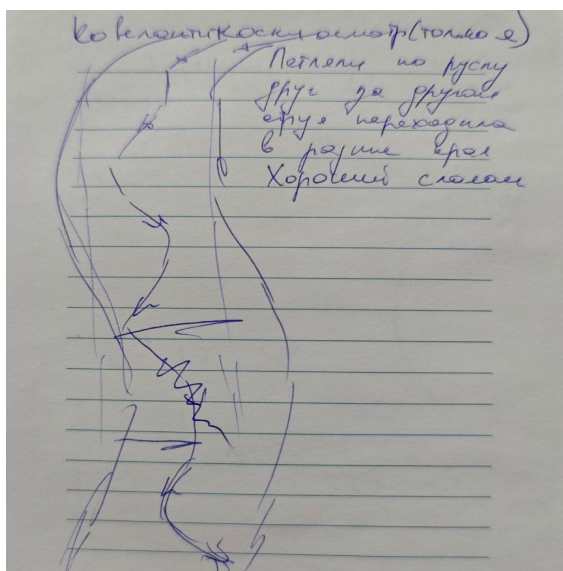 осмотр (только я)
Петляли по руслу
друг за другом
струя переходила
в разные края
Хороший слалом